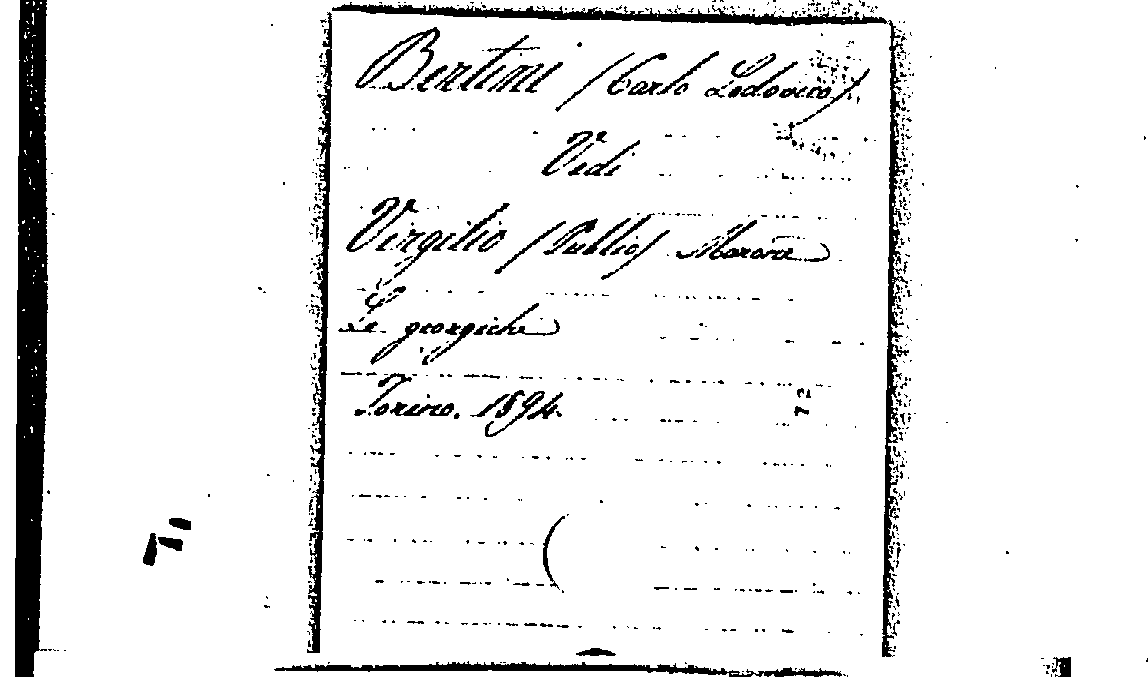 Bertini (Carlo Lodovico).
Vedi
Virgilio (Publio) Marone
Le georgiche
Torino. 1894.